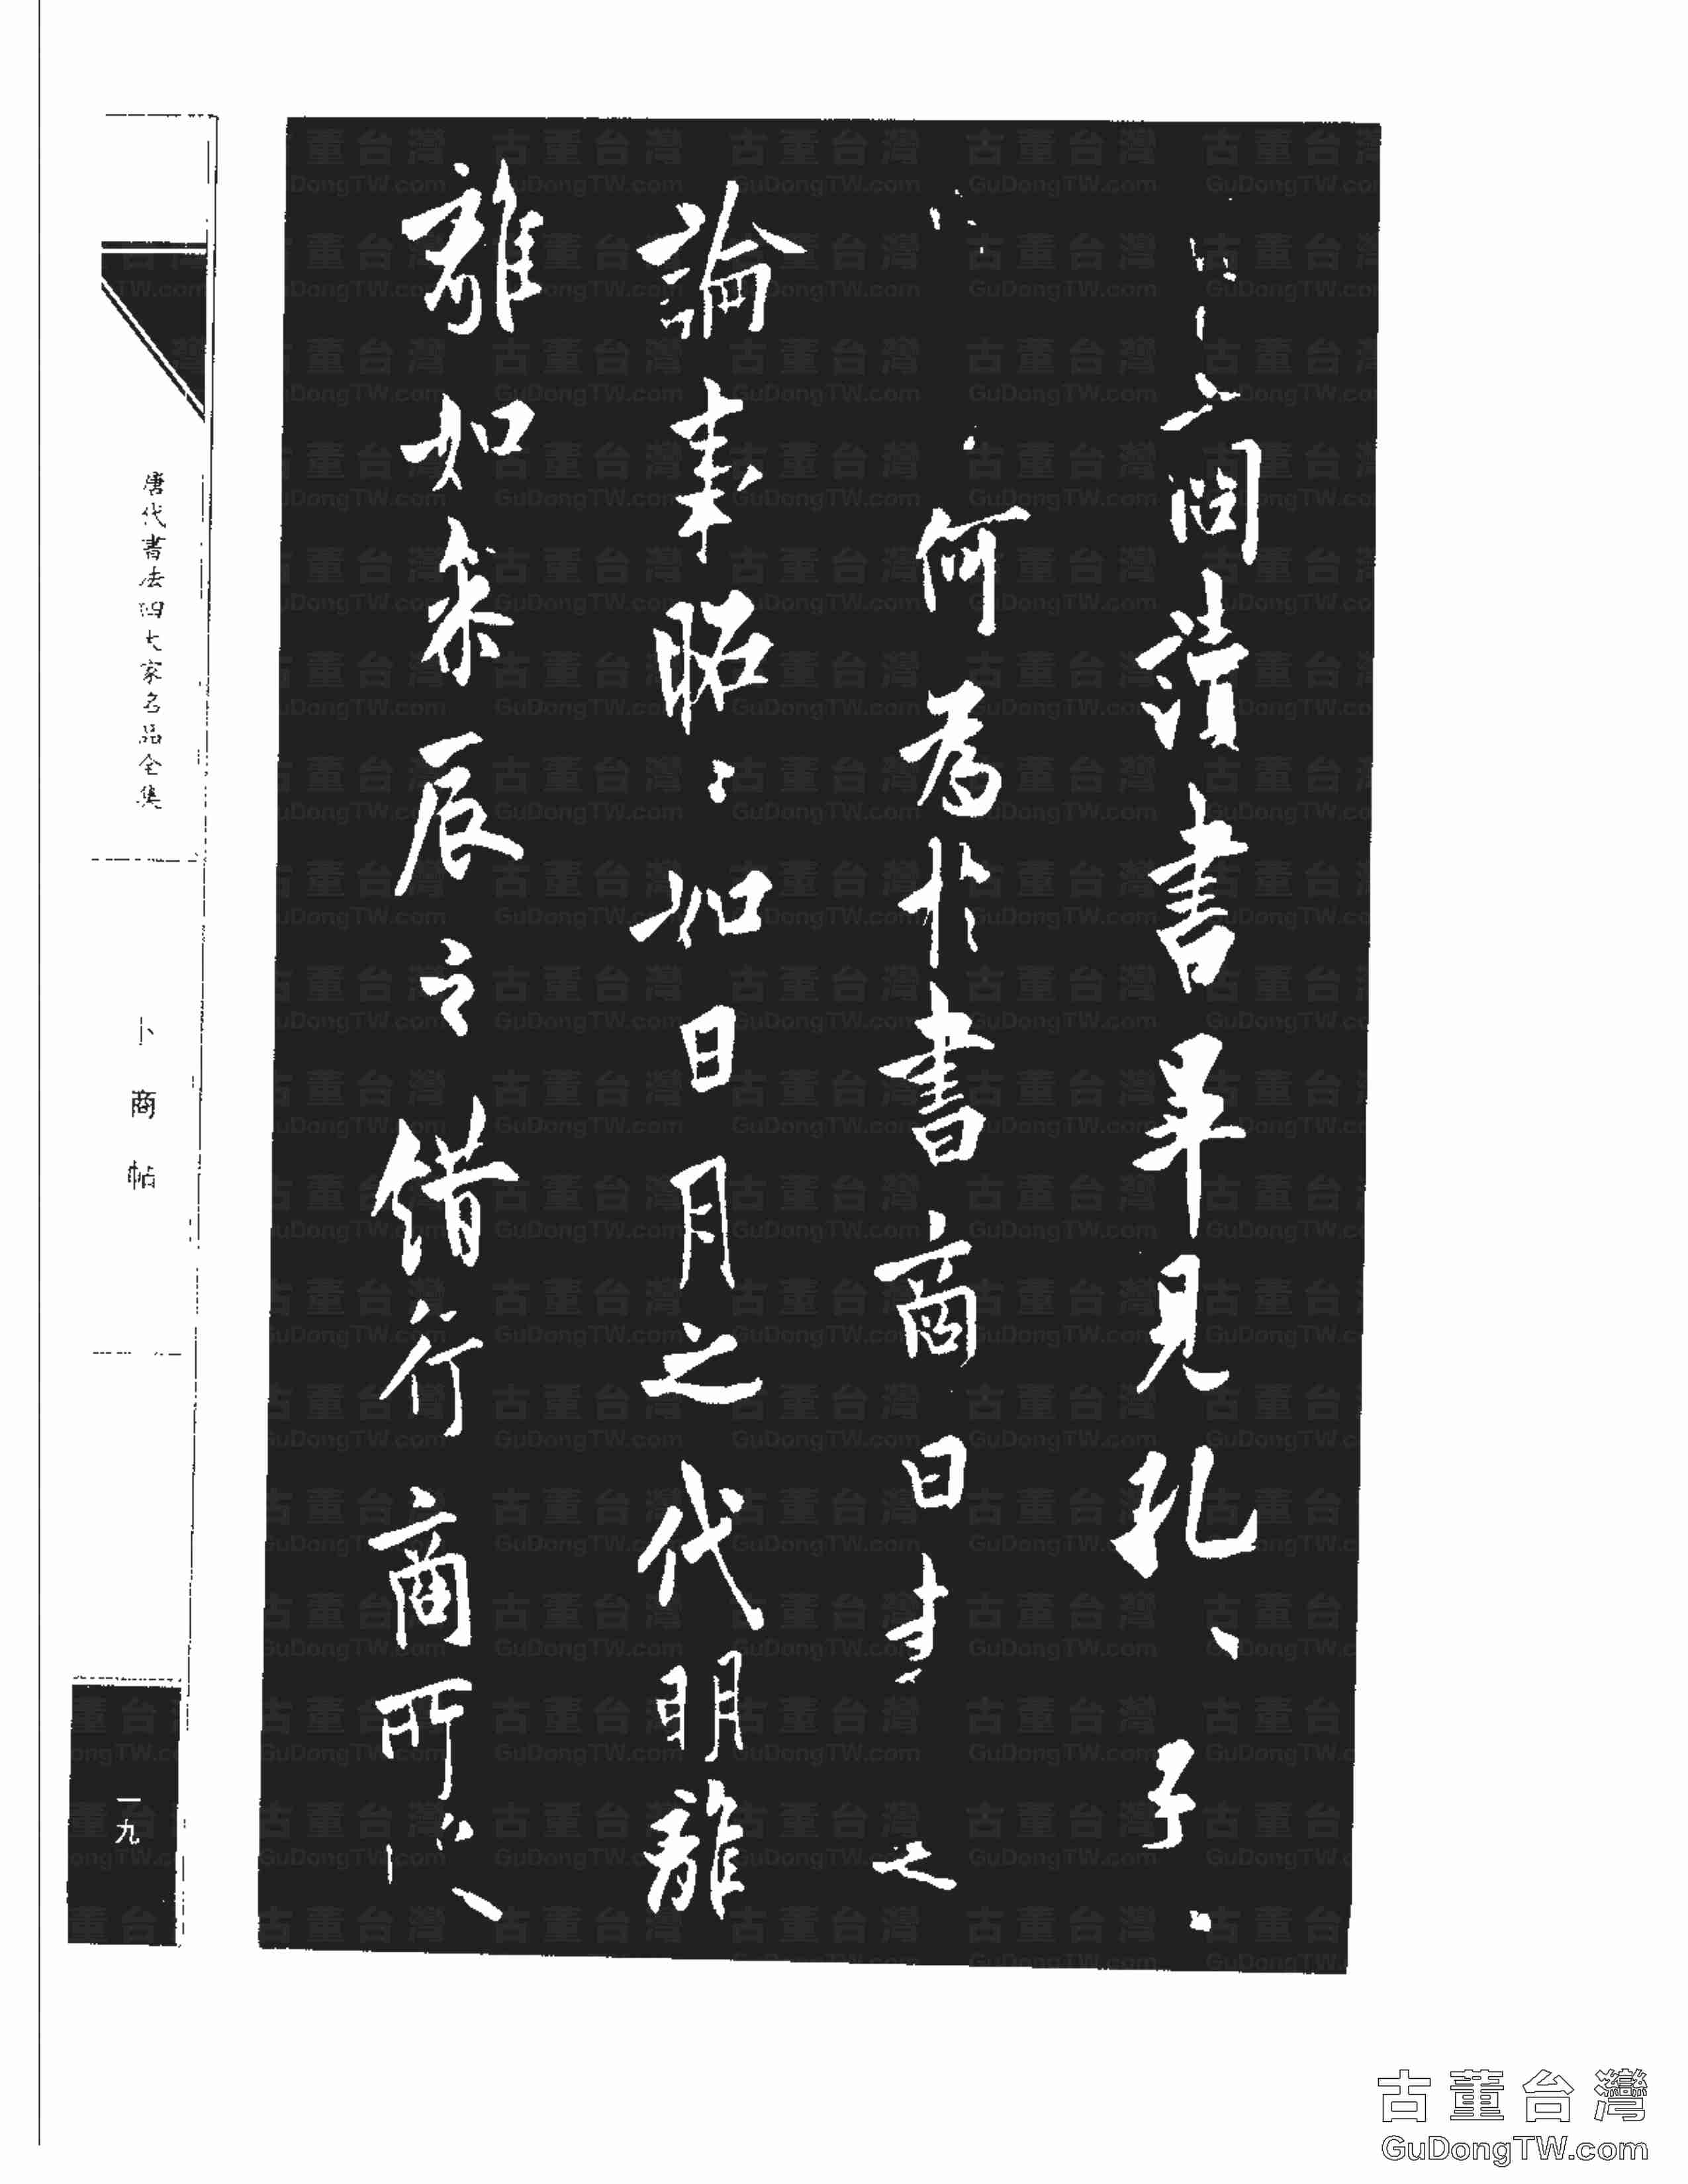 商讀書畢見孔子
何為於書商曰書之
論事昭〻如日月之代明離
離如參辰之錯行商所
唐代書法四大家名品全集
卜商帖
一九
古董台灣
GuDongTW.com